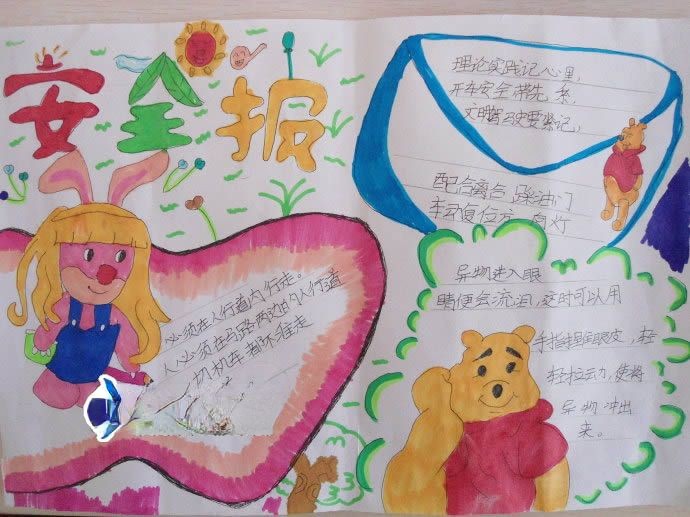 安全报
理论实践记心里,
开车安全带先系,
文明驾驶要紧记,
配合离合踩油门
必须在人行道内行走。
人必须在马路两边的人行道
机车都不往走
异物进入眼
睛便会流泪,这时可以用
手指捏住眼皮,轻
轻拉动,使将
异物冲出
来。